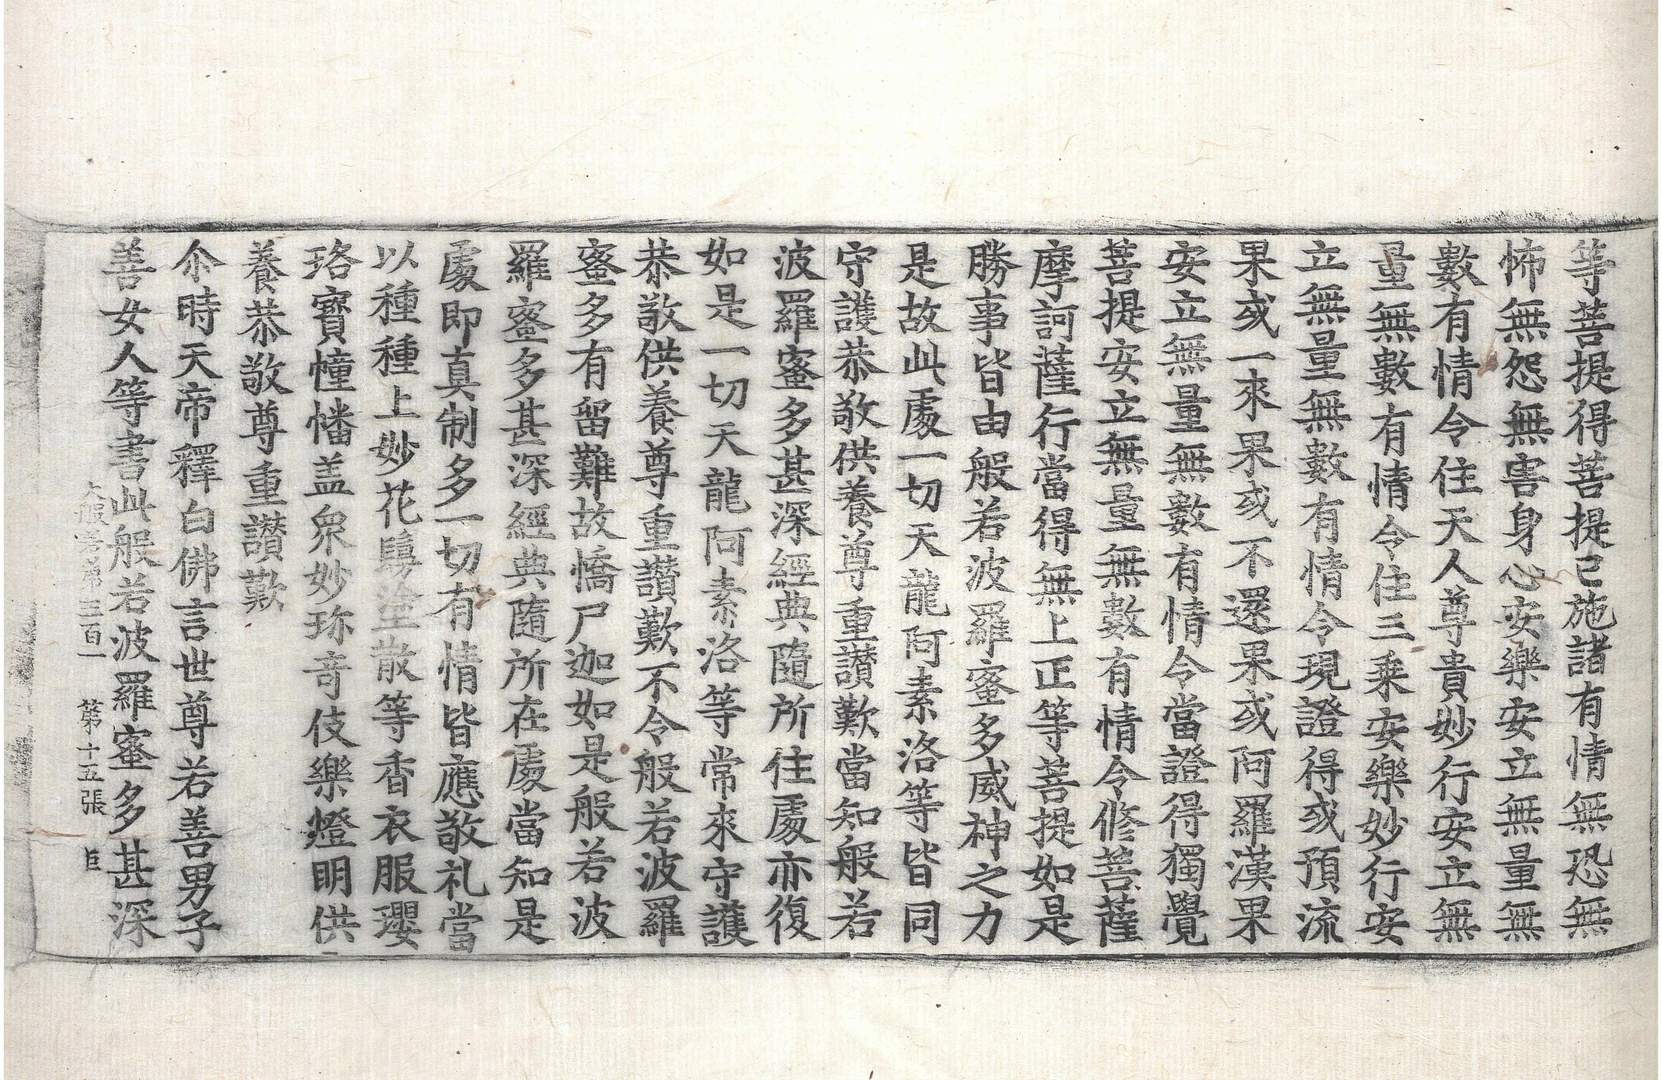 等菩提得菩提已施諸有情無恐無
怖無怨無害身心安樂安立無量無
數有情令住天人尊貴妙行安立無
量無數有情令住三乘安樂妙行安
立無量無數有情令現證得或預流
果或一來果或不還果或阿羅漢果
安立無量無數有情令當證得獨覺
菩提安立無量無數有情令修菩薩
摩訶薩行當得無上正等菩提如是
勝事皆由般若波羅蜜多威神之力
是故此處一切天龍阿素洛等皆同
守護恭敬供養尊重讃歎當知般若
波羅蜜多甚深經典隨所住處亦復
如是一切天龍阿素洛等常來守護
恭敬供養尊重讃歎不令般若波羅
蜜多有留難故憍尸迦如是般若波
羅蜜多甚深經典隨所在處當知是
處即真制多一切有情皆應敬礼當
以種種上妙花鬘塗散等香衣服瓔
珞寶幢幡盖衆妙珎奇伎樂燈明供
養恭敬尊重讃歎
尒時天帝釋白佛言世尊若善男子
善女人等書此般若波羅蜜多甚深
大般若第三百一 第十五張 臣